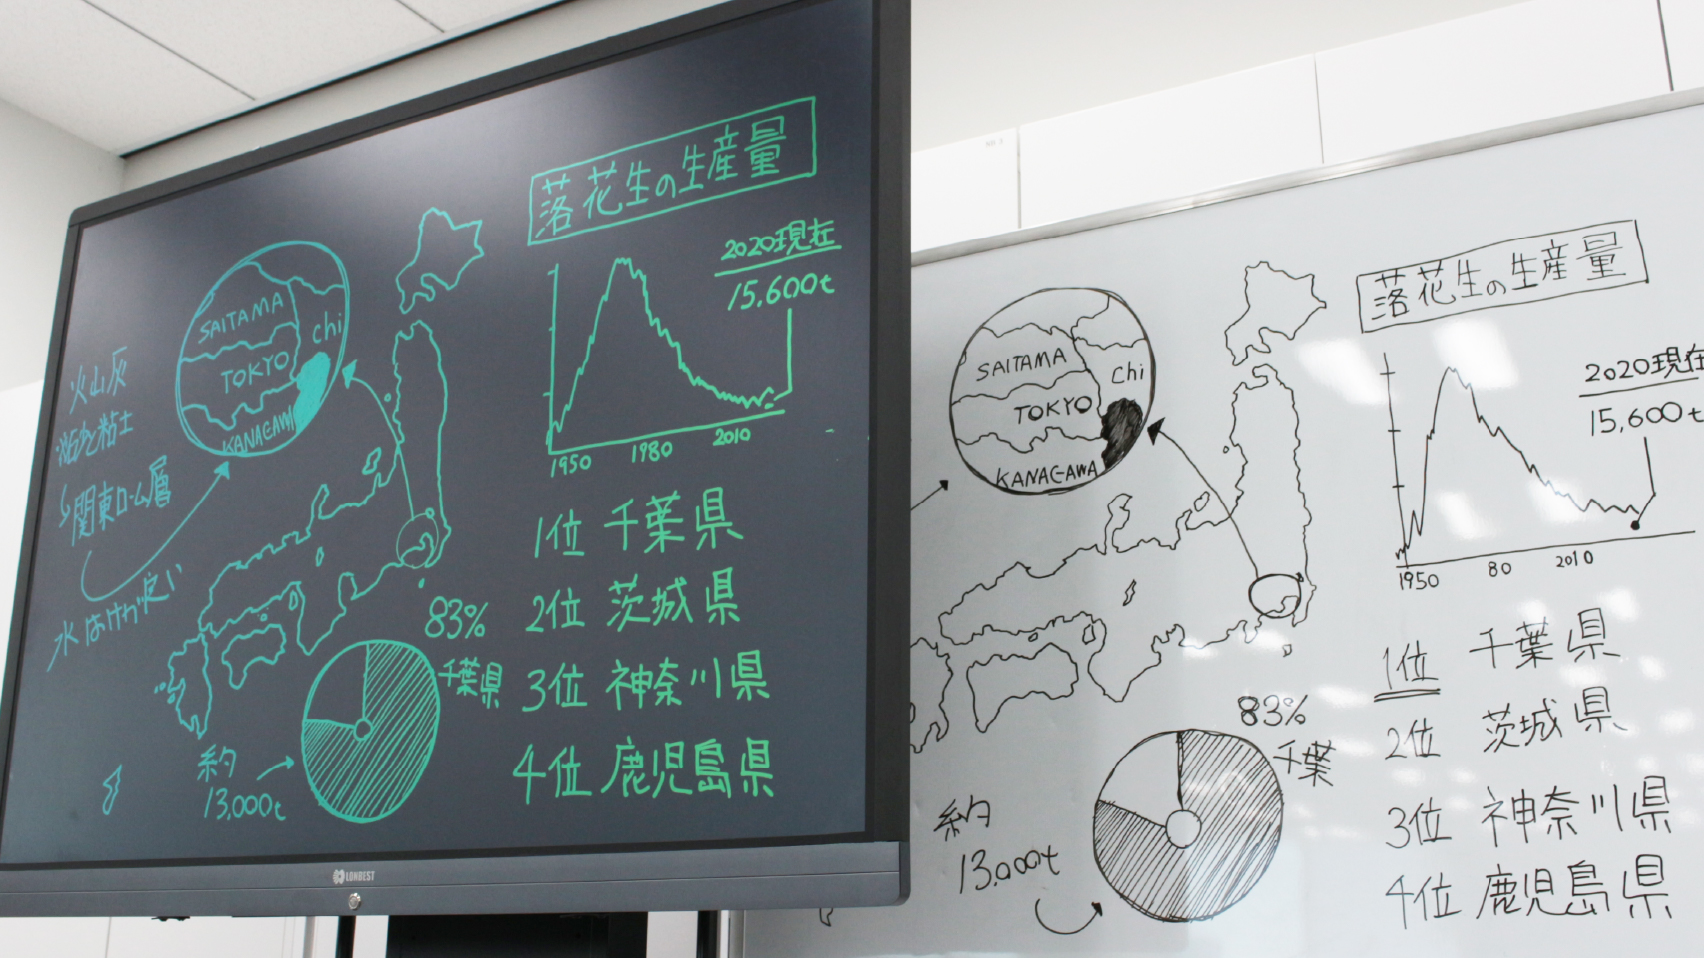 落花生の生産量
2020現在
15,600t
1950 1980 2010
SAITAMA
chi
TOKYO
KANAGAWA
火山灰
粘土
関東ローム層
水はけが良い
1位 千葉県
2位 茨城県
3位 神奈川県
4位 鹿児島県
83%
千葉県
約
13,000t
LONBEST
落花生の生産量
2020現在
15,600t
1950 80 2010
SAITAMA
chi
TOKYO
KANAGAWA
1位 千葉県
2位 茨城県
3位 神奈川県
4位 鹿児島県
83%
千葉
約
13,000t